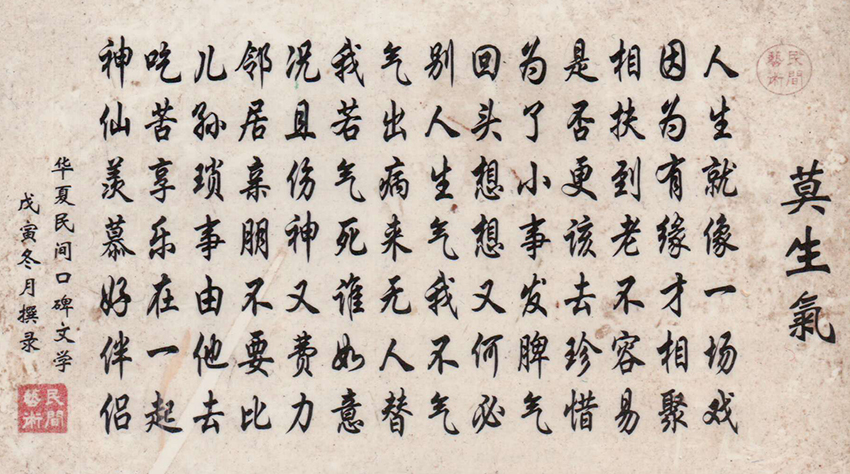 莫生氣
民間藝術
人生就像一场戏
因为有缘才相聚
相扶到老不容易
是否更该去珍惜
为了小事发脾气
回头想想又何必
别人生气我不气
气出病来无人替
我若气死谁如意
况且伤神又费力
邻居亲朋不要比
儿孙琐事由他去
吃苦享乐在一起
神仙羡慕好伴侣
华夏民间口碑文学
戊寅冬月撰录
民間藝術